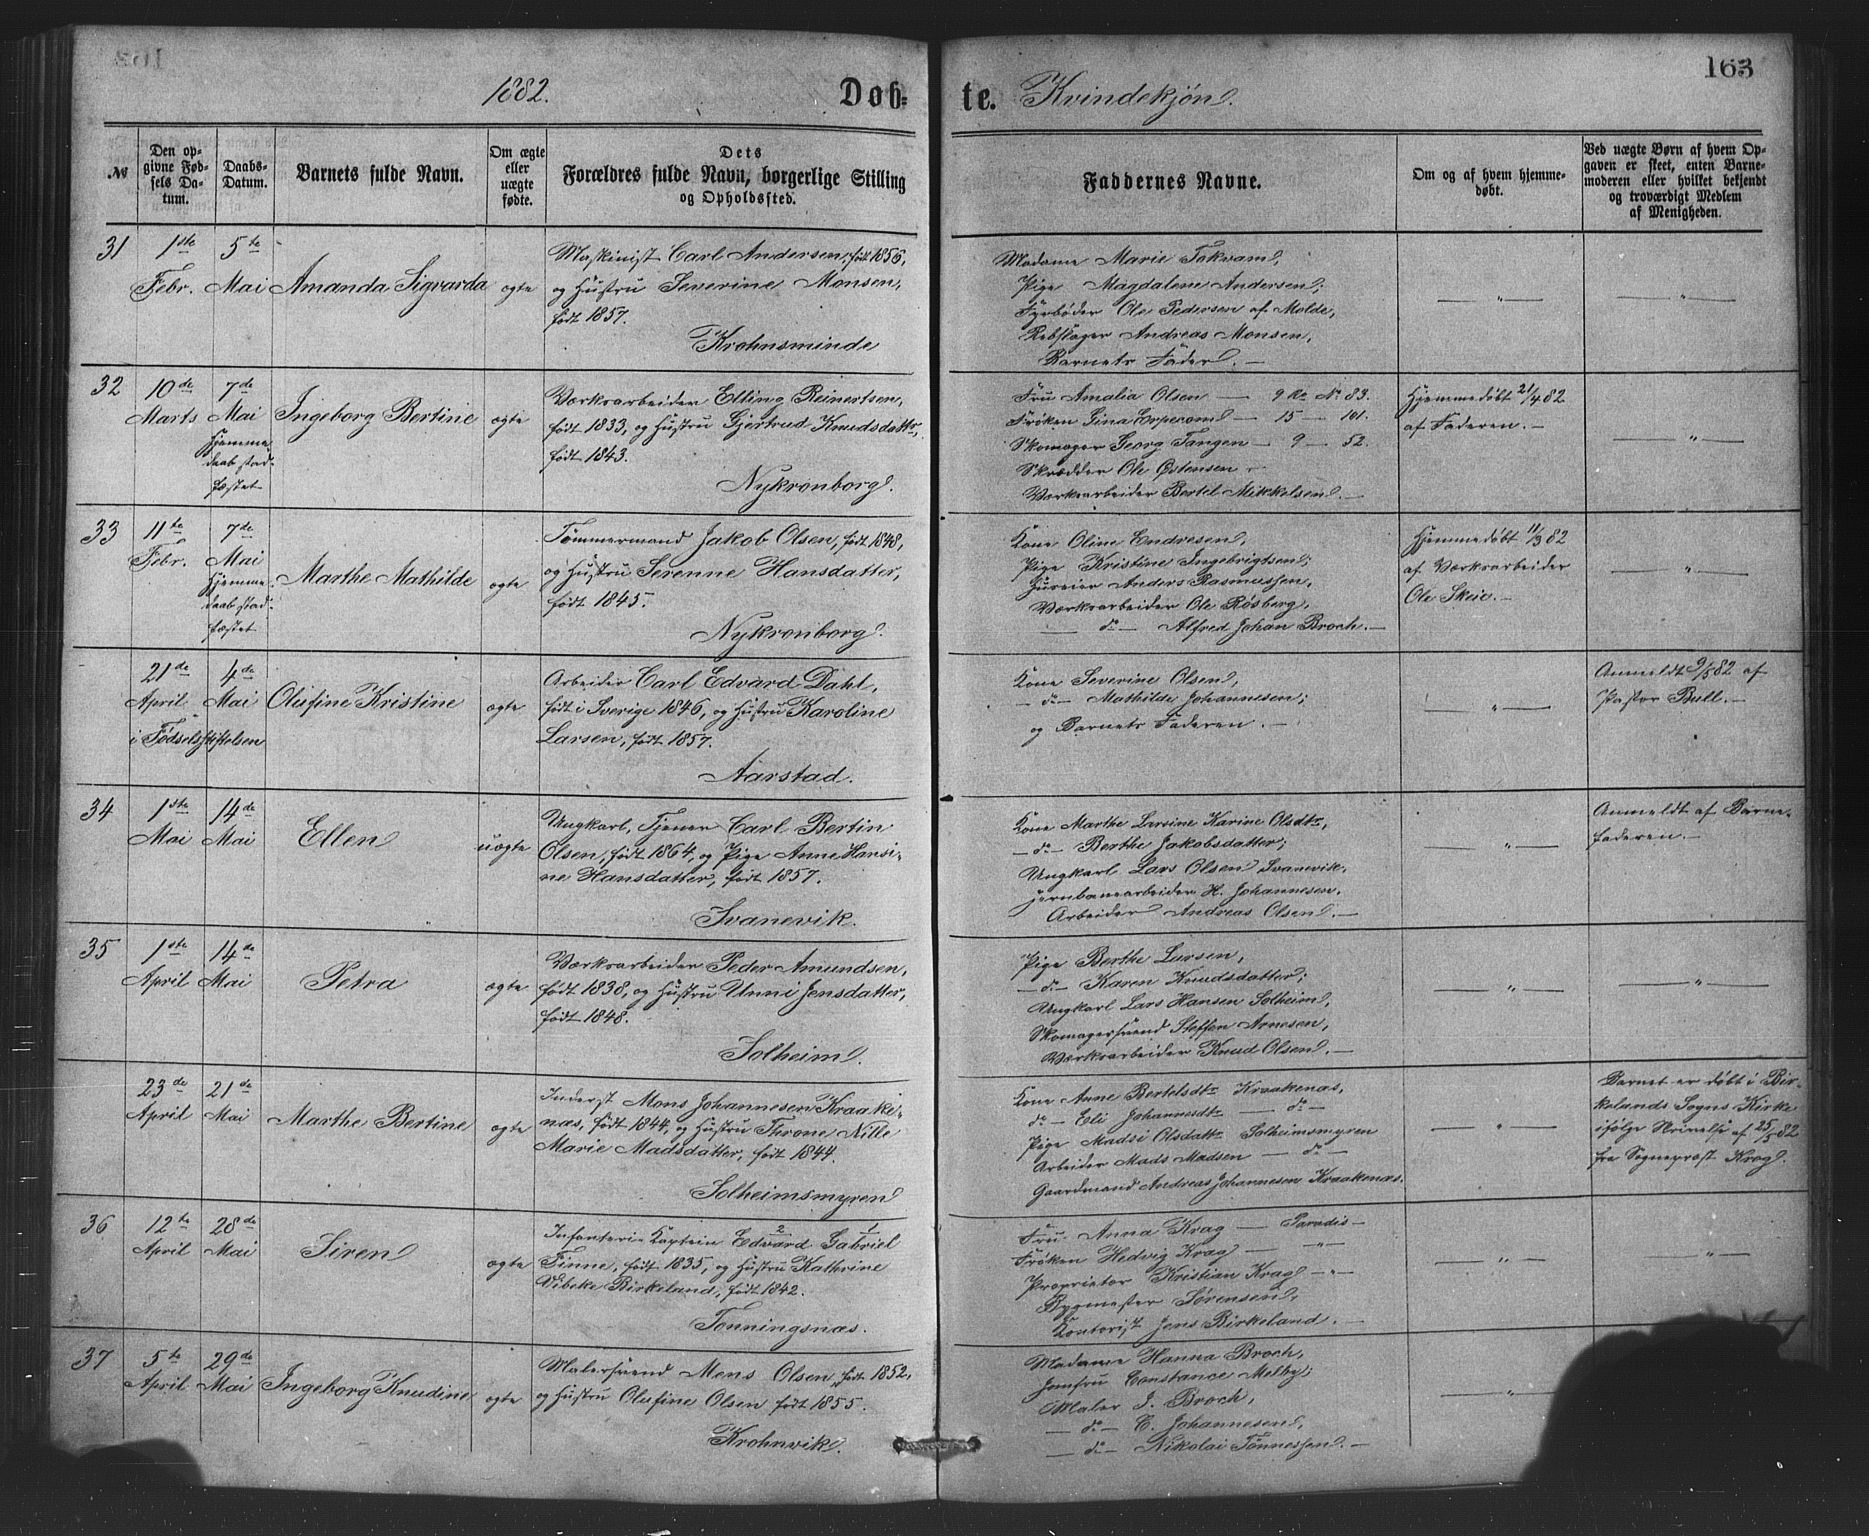 1882.
Døb-
te. Kvindekjøn.
163
№
Den op-
givne Fød-
sels Da-
tum.
Daabs-
Datum.
Barnets fulde Navn.
Om ægte
eller
uægte
fødte.
Dets
Forældres fulde Navn, borgerlige Stilling
og Opholdssted.
Faddernes Navne.
Om og af hvem hjemme-
døbt.
Ved uægte Børn af hvem Op-
gaven er skeet, enten Barne-
moderen eller hvilket bekjendt
og troværdigt Medlem
af Menigheden.
31
1ste
Febr.
5te
Mai
Amanda Sigvarda
ægte
Maskinist Carl Andersen, født 1856,
og Hustru Severine Monsen,
født 1857.
Krohnsminde
Madame Marie Fokvam,
Pige Magdalene Andersen;
Fyrbøder Ole Pedersen af Molde,
Rebslager Andreas Monsen,
Barnets Fader. —
— „ —
— „ —
32
10de
Marts
7de
Mai
Hjemme-
daab stad-
fæstet
Ingeborg Bertine
ægte
Værksarbeider Elling Reinertsen,
født 1833, og Hustru Gjertrud Knudsdattr,
født 1843.
Nykronborg.
Fru Amalia Olsen — 9 Rd No 83.
Frøken Gina Erpecom — 15 — 101.
Skomager Georg Tangen — 9 — 52.
Skrædder Ole Østensen —
Værksarbeider Bertel Mikkelsen. —
Hjemmedøbt 21/4 82
af Faderen. —
— „ —
33
11te
Febr.
7de
Mai
Hjemme-
daab stad-
fæstet
Marthe Mathilde
ægte
Tømmermand Jakob Olsen, født 1848,
og Hustru Serenne Hansdatter,
født 1845.
Nykronborg.
Kone Oline Endresen,
Pige Kristine Ingebrigtsen;
Huseier Anders Rasmussen,
Værksarbeider Ole Røsberg,
— do — Alfred Johan Broch. —
Hjemmedøbt 11/3 82
af Værksarbeider
Ole Skeie. —
— „ —
21de
April
4de
Mai
i Fødselsstiftelsen
Olufine Kristine
ægte
Arbeider Carl Edvard Dahl,
født i Sverige 1846, og Hustru Karoline
Larsen, født 1857.
Aarstad.
Kone Severine Olsen,
— do — Mathilde Johannesen;
og Barnets Faderen. —
— „ —
Anmeldt 9/5 82 af
Pastor Bull. —
34
1ste
Mai
14de
Mai
Ellen
uægte
Ungkarl, Tjener Carl Bertin
Olsen, født 1864, og Pige Anne Hansi-
ne Hansdatter, født 1857.
Svanevik.
Kone Marthe Larsine Karine Olsdtr,
— do — Berthe Jakobsdatter;
Ungkarl Lars Olsen Svanevik,
Jernbanearbeider H. Johannesen,
Arbeider Andreas Olsen. —
— „ —
Anmeldt af Barne-
faderen. —
35
1ste
April
14de
Mai
Petra
ægte
Værksarbeider Peder Amundsen,
født 1838, og Hustru Unni Jensdatter,
født 1848.
Solheim.
Pige Berthe Larsen,
— do — Karen Knudsdatter;
Ungkarl Lars Hansen Solheim,
Skomagersvend Steffen Arnesen,
Værksarbeider Knud Olsen. —
— „ —
— „ —
23de
April
21de
Mai
Marthe Bertine
ægte
Inderst Mons Johannesen Kraake-
næs, født 1844, og Hustru Throne Nille
Marie Madsdatter, født 1844.
Solheimsmyren
Kone Anne Bertelsdtr Kraakenæs,
do — Eli Johannesdtr — do —
Pige Madsi Olsdattr Solheimsmyren
Arbeider Mads Madsen — do —
Gaardmand Andreas Johannesen Kraakenæs.
— „ —
Barnet er døbt i Bir-
kelands Sogns Kirke
ifølge Skrivelse af 25/5 82
fra Sognepræst Krag.
36
12te
April
28de
Mai
Siren
ægte
Infanteri-Kaptein Edvard 2 Gabriel 1
Finne, født 1835, og Hustru Kathrine
Vibeke Birkeland, født 1842.
Tonningsnæs.
Fru Anna Krag — Paradis —
Frøken Hedvig Krag — „ —
Proprietær Kristian Krag — „
Bygmester Sørensen,
Kontorist Jens Birkeland. —
— „ —
— „ —
37
5te
April
29de
Mai
Ingeborg Knudine
ægte
Malersvend Mons Olsen, født 1852,
og Hustru Olufine Olsen født 1855.
Krohnvik.
Madame Hanna Broch,
Jomfru Constance Melby;
Maler J. Broch,
— do — C. Johannesen,
— do — Nikolai Tønnessen. —
— „ —